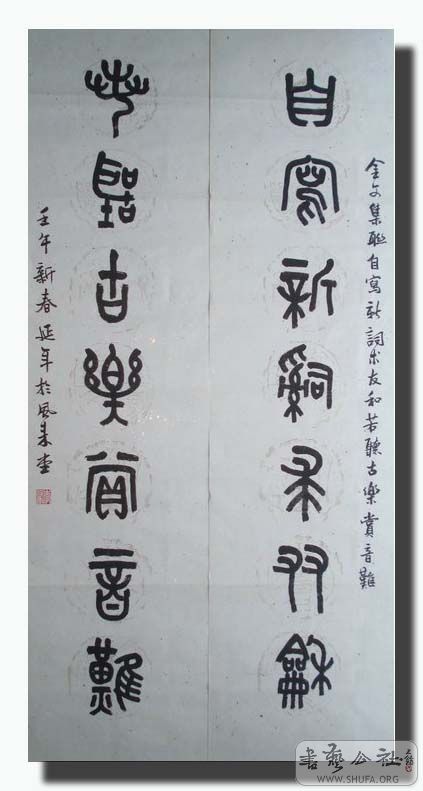 金文集聯自寫新詞求友和若聽古樂賞音難
自寫新辭求友龢
若聽古樂賞音難
壬午新春延年於風來
書藝公社
WWW.SHUFA.ORG